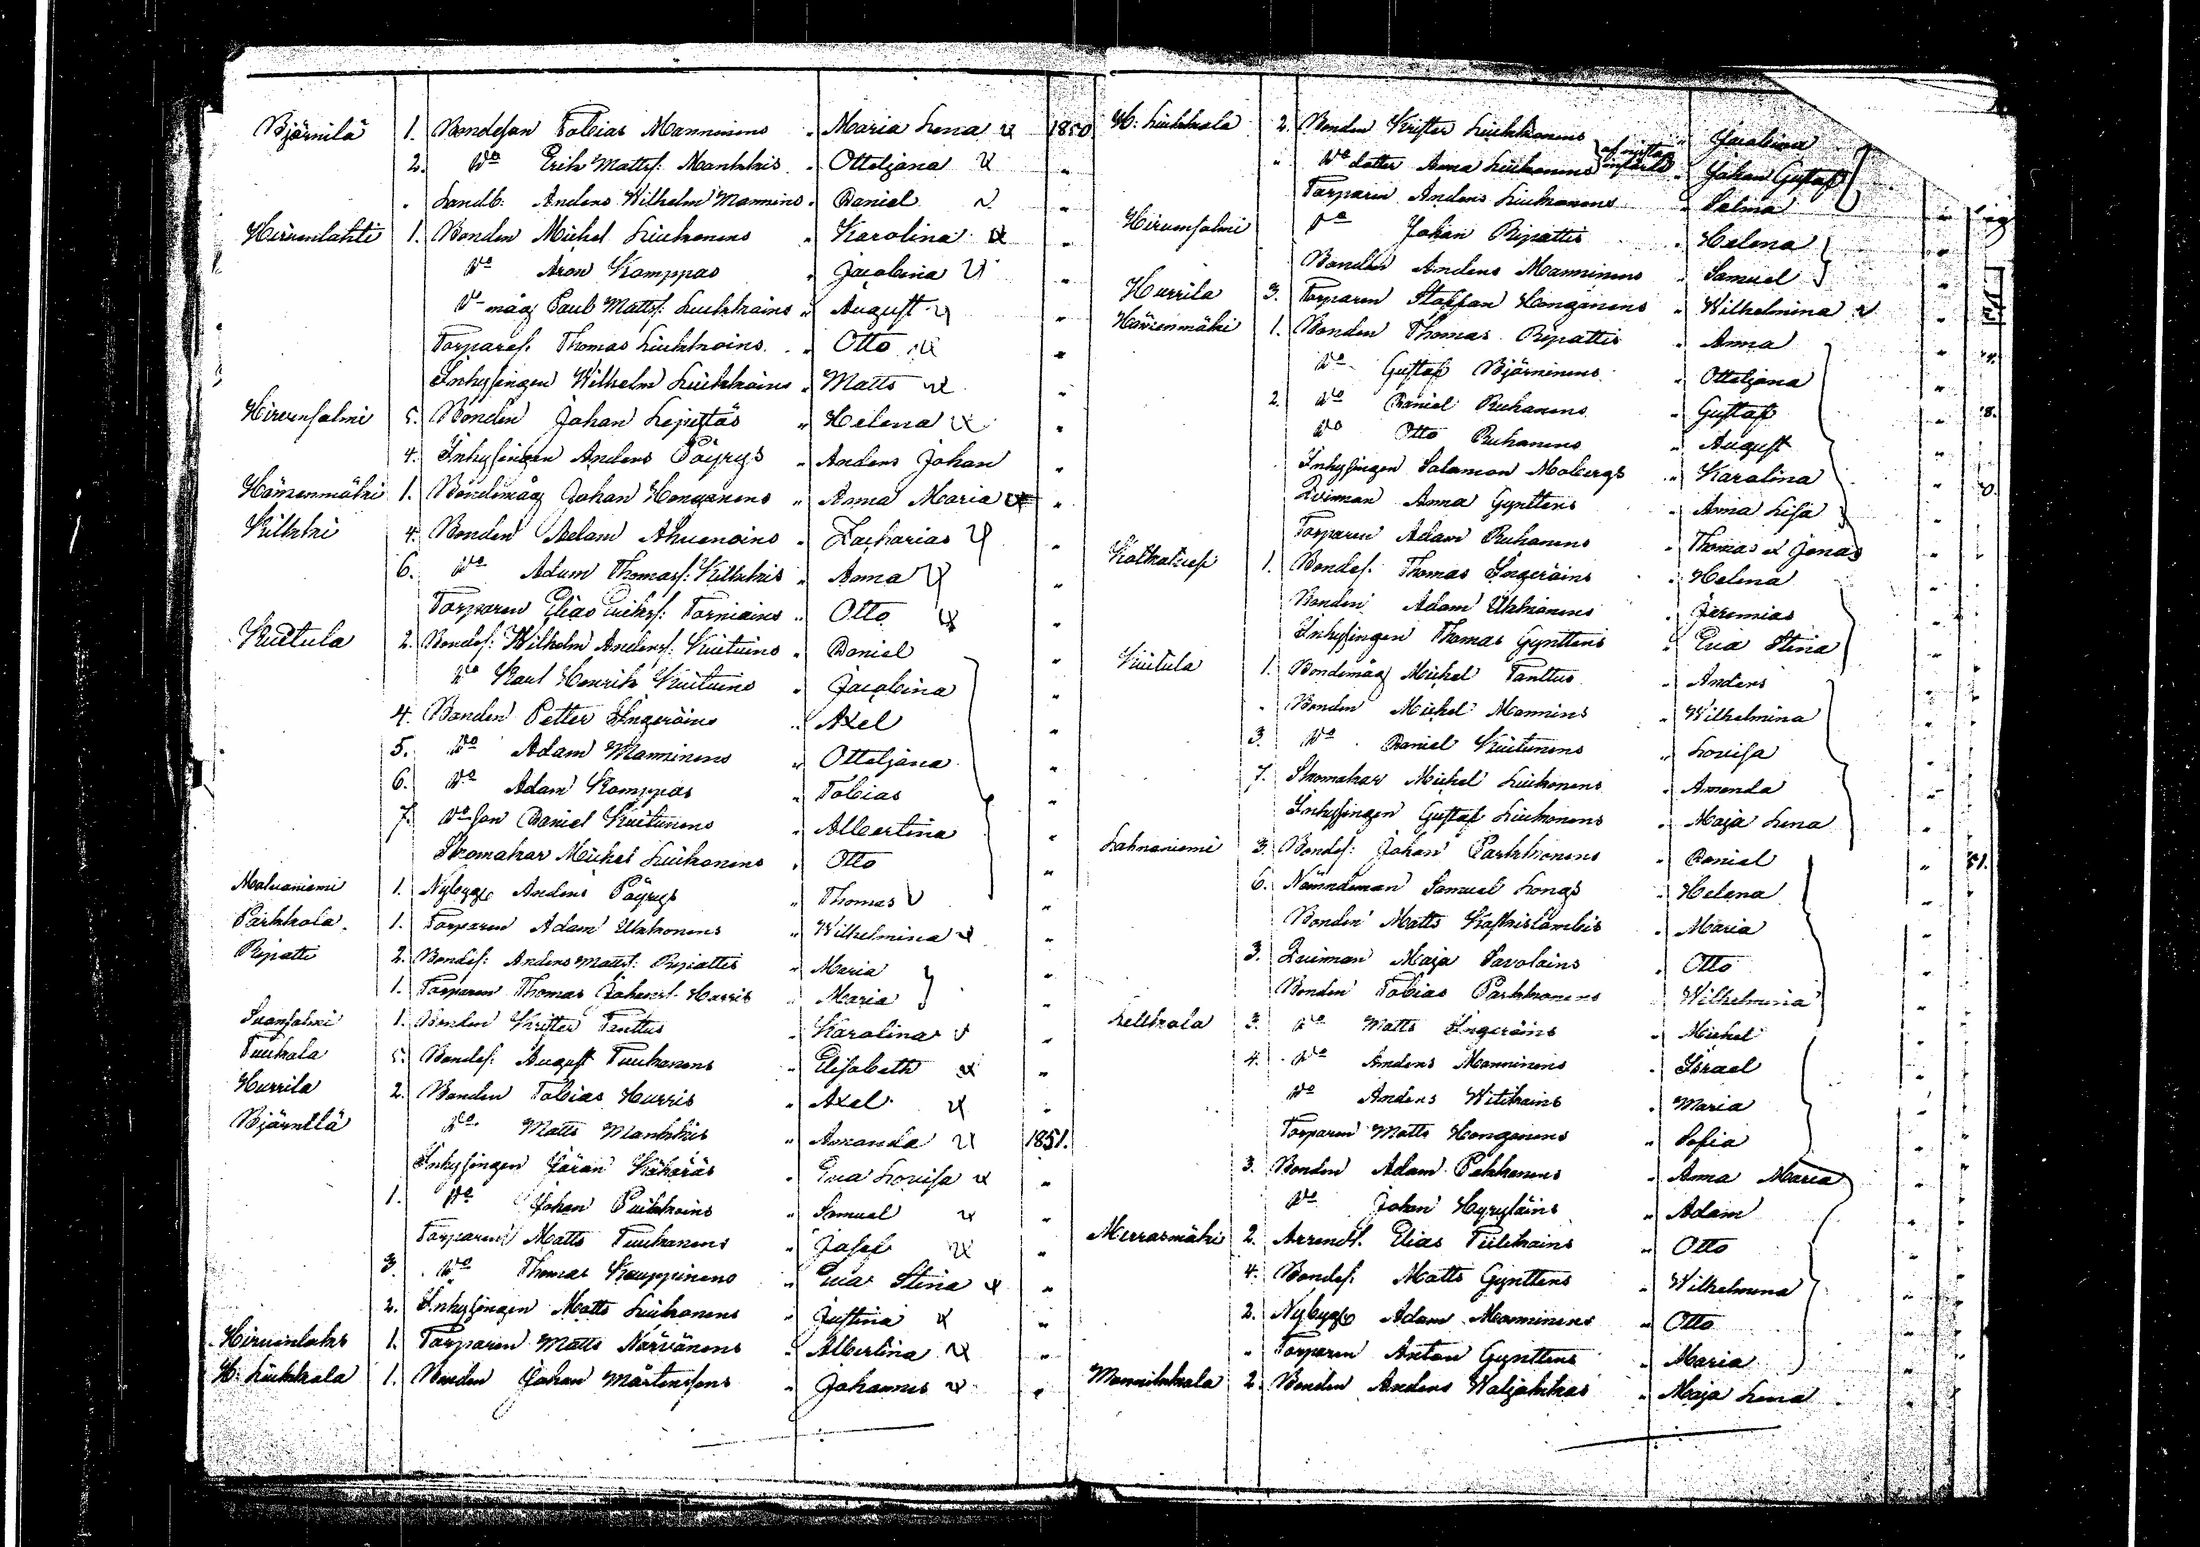 Björnilä 1. Bondesan Tobias Manninens " Maria Lena 1850
2. Do Erik Mattss: Mankkis " Otteljana "
" Landb: Anders Wilhelm Mannins " Daniel "
Hirvenlahti 1. Bonden Michel Liukonens " Karolina "
Do Aron Komppas " Jacobina "
Do måg Paul Mattss: Liukkoins " August "
Torpares. Thomas Liukkoins " Otto "
Inhysingen Wilhelm Liukkoins " Matts "
Hirvensalmi 5. Bonden Johan Lepistös " Helena "
4. Inhysingen Anders Pöyrys " Anders Johan "
Hämenmäki 1. Bondemåg Johan Hongonens " Anna Maria "
Kilkki 4. Bonden Adam Ahvenains " Zacharias "
6. Do Adam Thomass: Kilkkis " Anna "
Torparen Elias Eriks: Torniains " Otto
Kuitula 2. Bondes: Wilhelm Anderss: Kuituins " Daniel "
Do Karl Henrik Kuituins " Jacobina "
4. Bonden Petter Ingeröins " Axel "
5. Do Adam Manninens " Otteljana "
6. Do Adam Komppas " Tobias "
7. Do son Daniel Kuitunens " Albertina "
Skomakar Michel Liukonens " Otto "
Malvaniemi 1. Nybygg. Anders Pöyrys " Thomas "
Parkkola 1. Torparen Adam Ukkonens " Wilhelmina "
Ripatti 2. Bondes: Anders Mattss: Ripattis " Maria "
1. Torparen Thomas Johanss. Harris " Maria "
Suonsalmi 1. Bonden Krister Tanttus " Karolina "
Tuukala 5. Bondes: August Tuukanens " Elisabeth "
Hurrila 2. Bonden Tobias Hurris " Axel "
Björnilä Do Matts Mankkis " Amanda 1851.
Inhysingen Jöran Kähäräs " Eva Lovisa "
1. Do Johan Puikkoins " Samuel "
Torparen Matts Tuukanens " Josef "
3. Do Thomas Kauppinens " Eva Stina "
2. Inhysingen Matts Liukonens " Justina "
Hirvenlaks 1. Torparen Matts Närvänens " Albertina "
H: Liukkala 1. Bonden Johan Mårtenssons " Johannes "
H: Liukkala 2. Bonden Krister Liukkonens " Jacobina
" Do dotter Anna Liukonens " Johan Gustaf
Torparen Anders Liukonens " Selma "
Hirvensalmi Do Johan Ripattis " Helena "
Bonden Anders Manninens " Samuel "
Hurrila 3. Torparen Staffan Hongonens " Wilhelmina "
Hämenmäki 1. Bonden Thomas Ripattis " Anna "
Do Gustaf Björninens " Otteljana "
2. Do Daniel Ruhanens " Gustaf "
Do Otto Ruhanens " August "
Inhysingen Salomon Mobergs " Karolina "
Qvinnan Anna Gynttens " Anna Lisa "
Torparen Adam Ruhanens " Thomas et Jonas "
1. Bondes. Thomas Ingeröins " Helena "
Bonden Adam Ukkonens " Jeremias "
Inhysingen Thomas Gynttens " Eva Stina "
Kuitula 1. Bondemåg Michel Tanttus " Anders "
" Bonden Michel Mannins " Wilhelmina "
3. Do Daniel Kuitunens " Lovisa "
7. Skomakar Michel Liukonens " Amanda "
Inhysingen Gustaf Liukonens " Maja Lena "
Lahnaniemi 3. Bondes: Johan Parkkonens " Daniel "
6. Nämndeman Samuel Longs " Helena "
Bonden Matts " Maria "
3. Qvinnan Maja Savolains " Otto "
Bonden Tobias Parkkonens " Wilhelmina "
Lelkkala 3. Do Matts Ingeröins " Michel "
4. Do Anders Manninens " Israel "
Do Anders Witikains " Maria "
Torparen Matts Hongonens " Sofia "
3. Bonden Adam Pekkanens " Anna Maria "
Do Johan Hyryläins " Adam "
Merrasmäki 2. Arrends. Elias Tiilikains " Otto "
4. Bondes. Matts Gynttens " Wilhelmina "
2. Nybygg. Adam Manninens " Otto "
" Torparen Anton Gynttens " Maria "
Monnikkala 2. Bonden Anders Waljakkas " Maja Lena "